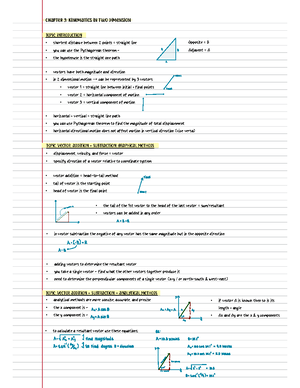 CHAPTER 3: KINEMATICS IN TWO DIMENSION
TOPIC: INTRODUCTION
shortest distance between 2 points = straight line
you can use the Pythagorean theorem -
the hypotenuse is the straight path
Opposite = B
Adjacent = A
vectors have both magnitude and direction
in 2 dimensional motion -> can be represented by 3 vectors
vector 1 = straight line between initial + final points
vector 2 = horizontal component of motion
vector 3 = vertical component of motion
horizontal + vertical = straight path
you can use Pythagorean theorem to find the magnitude of total displacement
horizontal direction motion does not affect motion in vertical direction (vice versa)
TOPIC: VECTOR ADDITION + SUBTRACTION: GRAPHICAL METHODS
displacement, velocity, and force = vector
specify direction of a vector relative to coordinate system
vector addition = head-to-tail method
tail of vector is the starting point
head of vector is the final point
the tail of the 1st vector to the head of the last vector = sum/resultant
vectors can be added in any order
A + B = B + A
in vector subtraction the negative of any vector has the same magnitude but in the opposite direction
A + (-B) = R
A - B = R
adding vectors to determine the resultant vector
you take a single vector = find what the other vectors together produce it
need to determine the perpendicular components of a single vector
TOPIC: VECTOR ADDITION + SUBTRACTION: ANALYTICAL METHODS
analytical methods are more concise, accurate, and precise
the x component is = Ax = A cos θ
the y component is = Ay = A sin θ
if vector A is known then so is its
length + angle
Ax and Ay are the x & y components
to calculate a resultant vector use these equations:
find magnitude
to find degree θ = direction